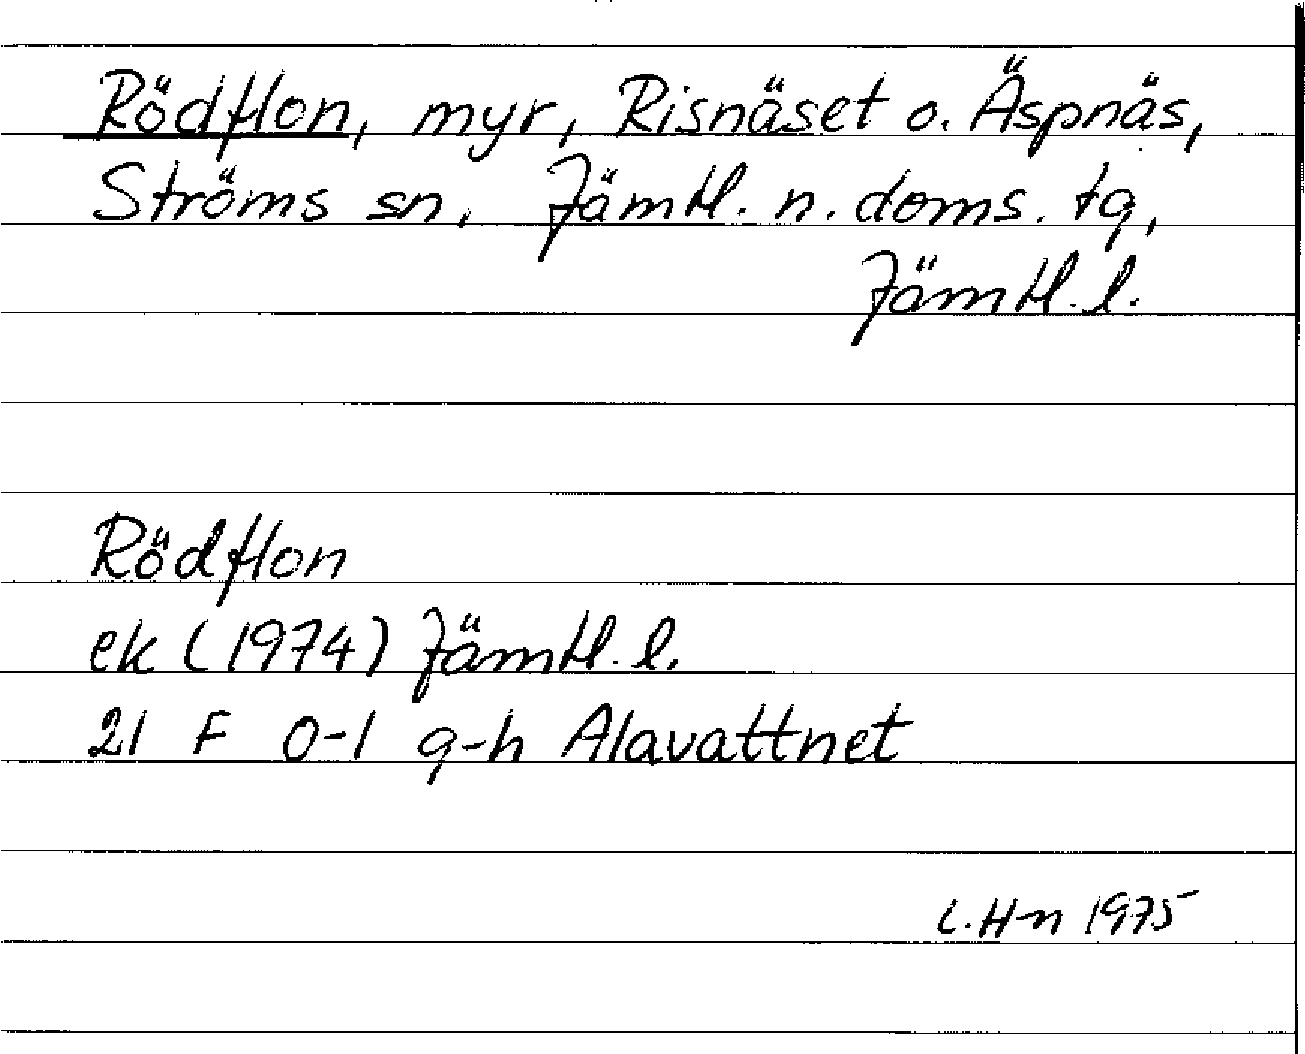 Rödflon, myr, Risnäset o. Äspnäs,
Ströms sn, Jämtl. n. doms. tg,
Jämtl. l.
Rödflon
ek (1974) Jämtl. l.
21 F 0-1 g-h Alavattnet
C. Hn 1975